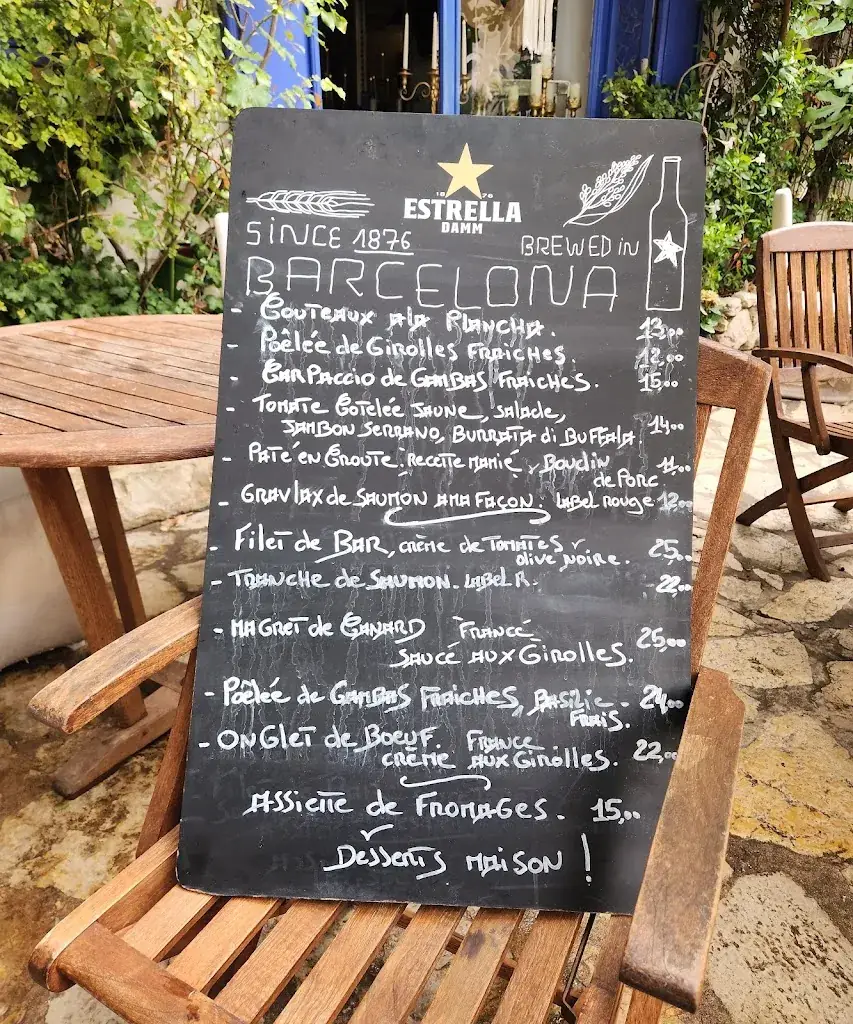 18 76
ESTRELLA
DAMM
SINCE 1876
BREWED IN
BARCELONA
- COUTEAUX A LA PLANCHA. 13,00
- Poêlée de Girolles FRAICHES. 12,00
- CARPACCIO de GAMBAS FRAICHES. 15,00
- TOMATE COTELÉE JAUNE, SALADE,
JAMBON SERRANO, BURRATA di BUFFALA 14,00
- PATÉ EN CROUTE. RECETTE MAMIÉ, Boudin
de Porc 11,00
- GRAVLAX de SAUMON A MA FAÇON. LABEL ROUGE 12,00
- Filet de BAR, crème de TOMATES
olive noire. 25,00
- TRANCHE de SAUMON. LABEL R. 22,00
- MAGRET de CANARD FRANCE 25,00
SAUCE AUX Girolles.
- Poêlée de GAMBAS FRAICHES, BASILIC 24,00
FRAIS.
- ONGLET de BOEUF. FRANCE 22,00
CRÈME AUX Girolles.
ASSIETTE de FROMAGES. 15,00
Desserts MAISON !